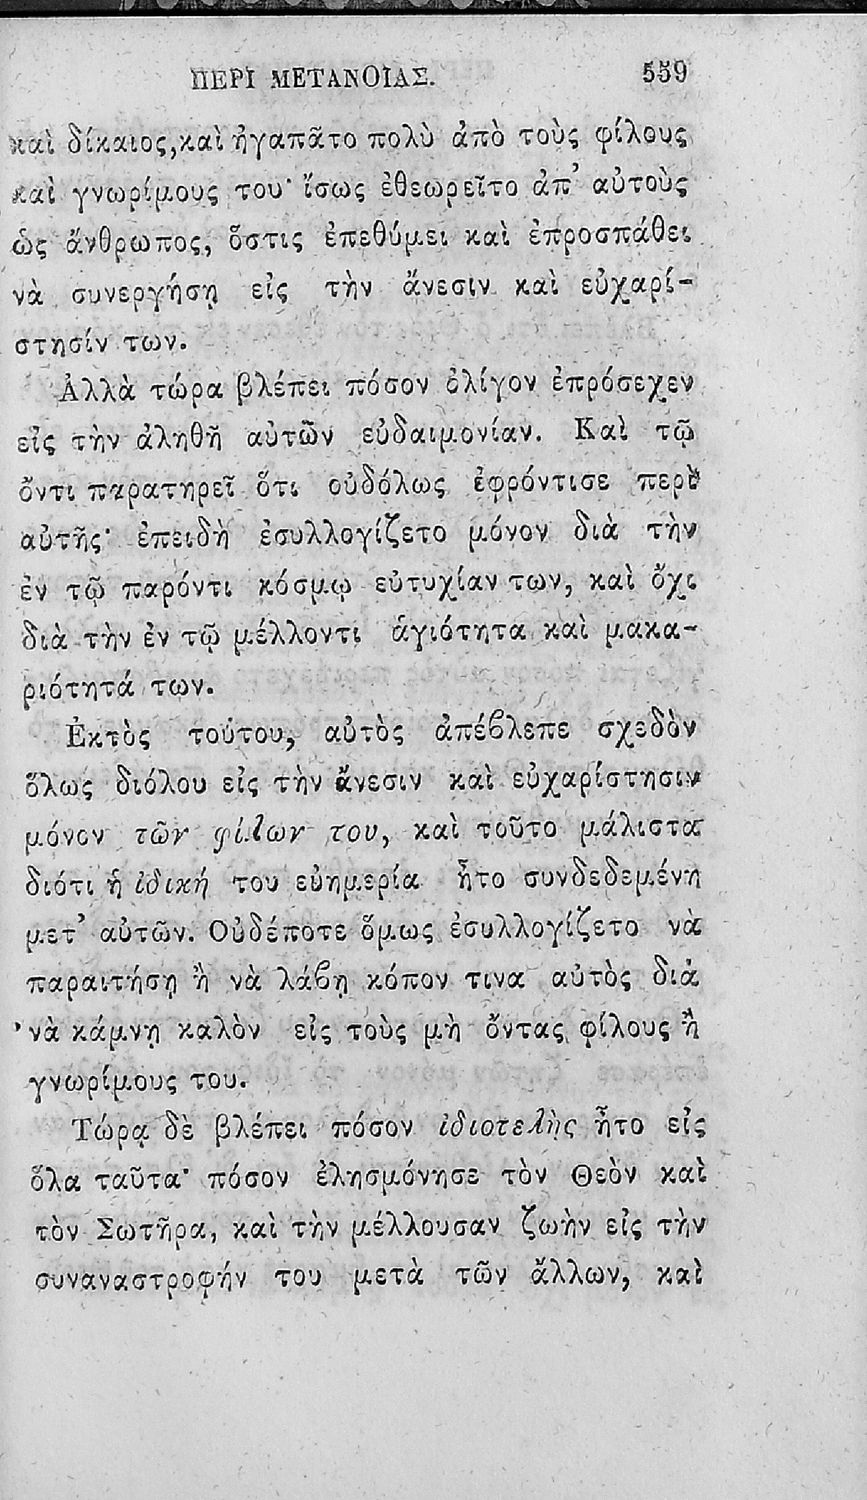 ΠΕΡῚ ΜΕΤΑΝΟΊΑΣ. 559
καὶ δίκαιος, καὶ ἠγαπᾶτο πολὺ ἀπὸ τοὺς φίλους
καὶ γνωρίμους του· ἴσως ἐθεωρεῖτο ἀπ’ αὐτοὺς
ὡς ἄνθρωπος, ὅστις ἐπεθύμει καὶ ἐπροσπάθει
νὰ συνεργήσῃ εἰς τὴν ἄνεσιν καὶ εὐχαρί-
στησίν των.
Ἀλλὰ τώρα βλέπει πόσον ὀλίγον ἐπρόσεχεν
εἰς τὴν ἀληθῆ αὐτῶν εὐδαιμονίαν. Καὶ τῷ
ὄντι παρατηρεῖ ὅτι οὐδόλως ἐφρόντισε περὶ
αὐτῆς· ἐπειδὴ ἐσυλλογίζετο μόνον διὰ τὴν
ἐν τῷ παρόντι κόσμῳ εὐτυχίαν των, καὶ ὄχι
διὰ τὴν ἐν τῷ μέλλοντι ἁγιότητα καὶ μακα-
ριότητά των.
Ἐκτὸς τούτου, αὐτὸς ἀπέβλεπε σχεδὸν
ὅλως διόλου εἰς τὴν ἄνεσιν καὶ εὐχαρίστησιν
μόνον τῶν φίλων του, καὶ τοῦτο μάλιστα
διότι ἡ ἰδική του εὐημερία ἦτο συνδεδεμένη
μετ’ αὐτῶν. Οὐδέποτε ὅμως ἐσυλλογίζετο νὰ
παραιτήσῃ ἢ νὰ λάβῃ κόπον τινα αὐτὸς διὰ
νὰ κάμνῃ καλὸν εἰς τοὺς μὴ ὄντας φίλους ἢ
γνωρίμους του.
Τώρα δὲ βλέπει πόσον ἰδιοτελὴς ἦτο εἰς
ὅλα ταῦτα· πόσον ἐλησμόνησε τὸν Θεὸν καὶ
τὸν Σωτῆρα, καὶ τὴν μέλλουσαν ζωὴν εἰς τὴν
συναναστροφήν του μετὰ τῶν ἄλλων, καὶ